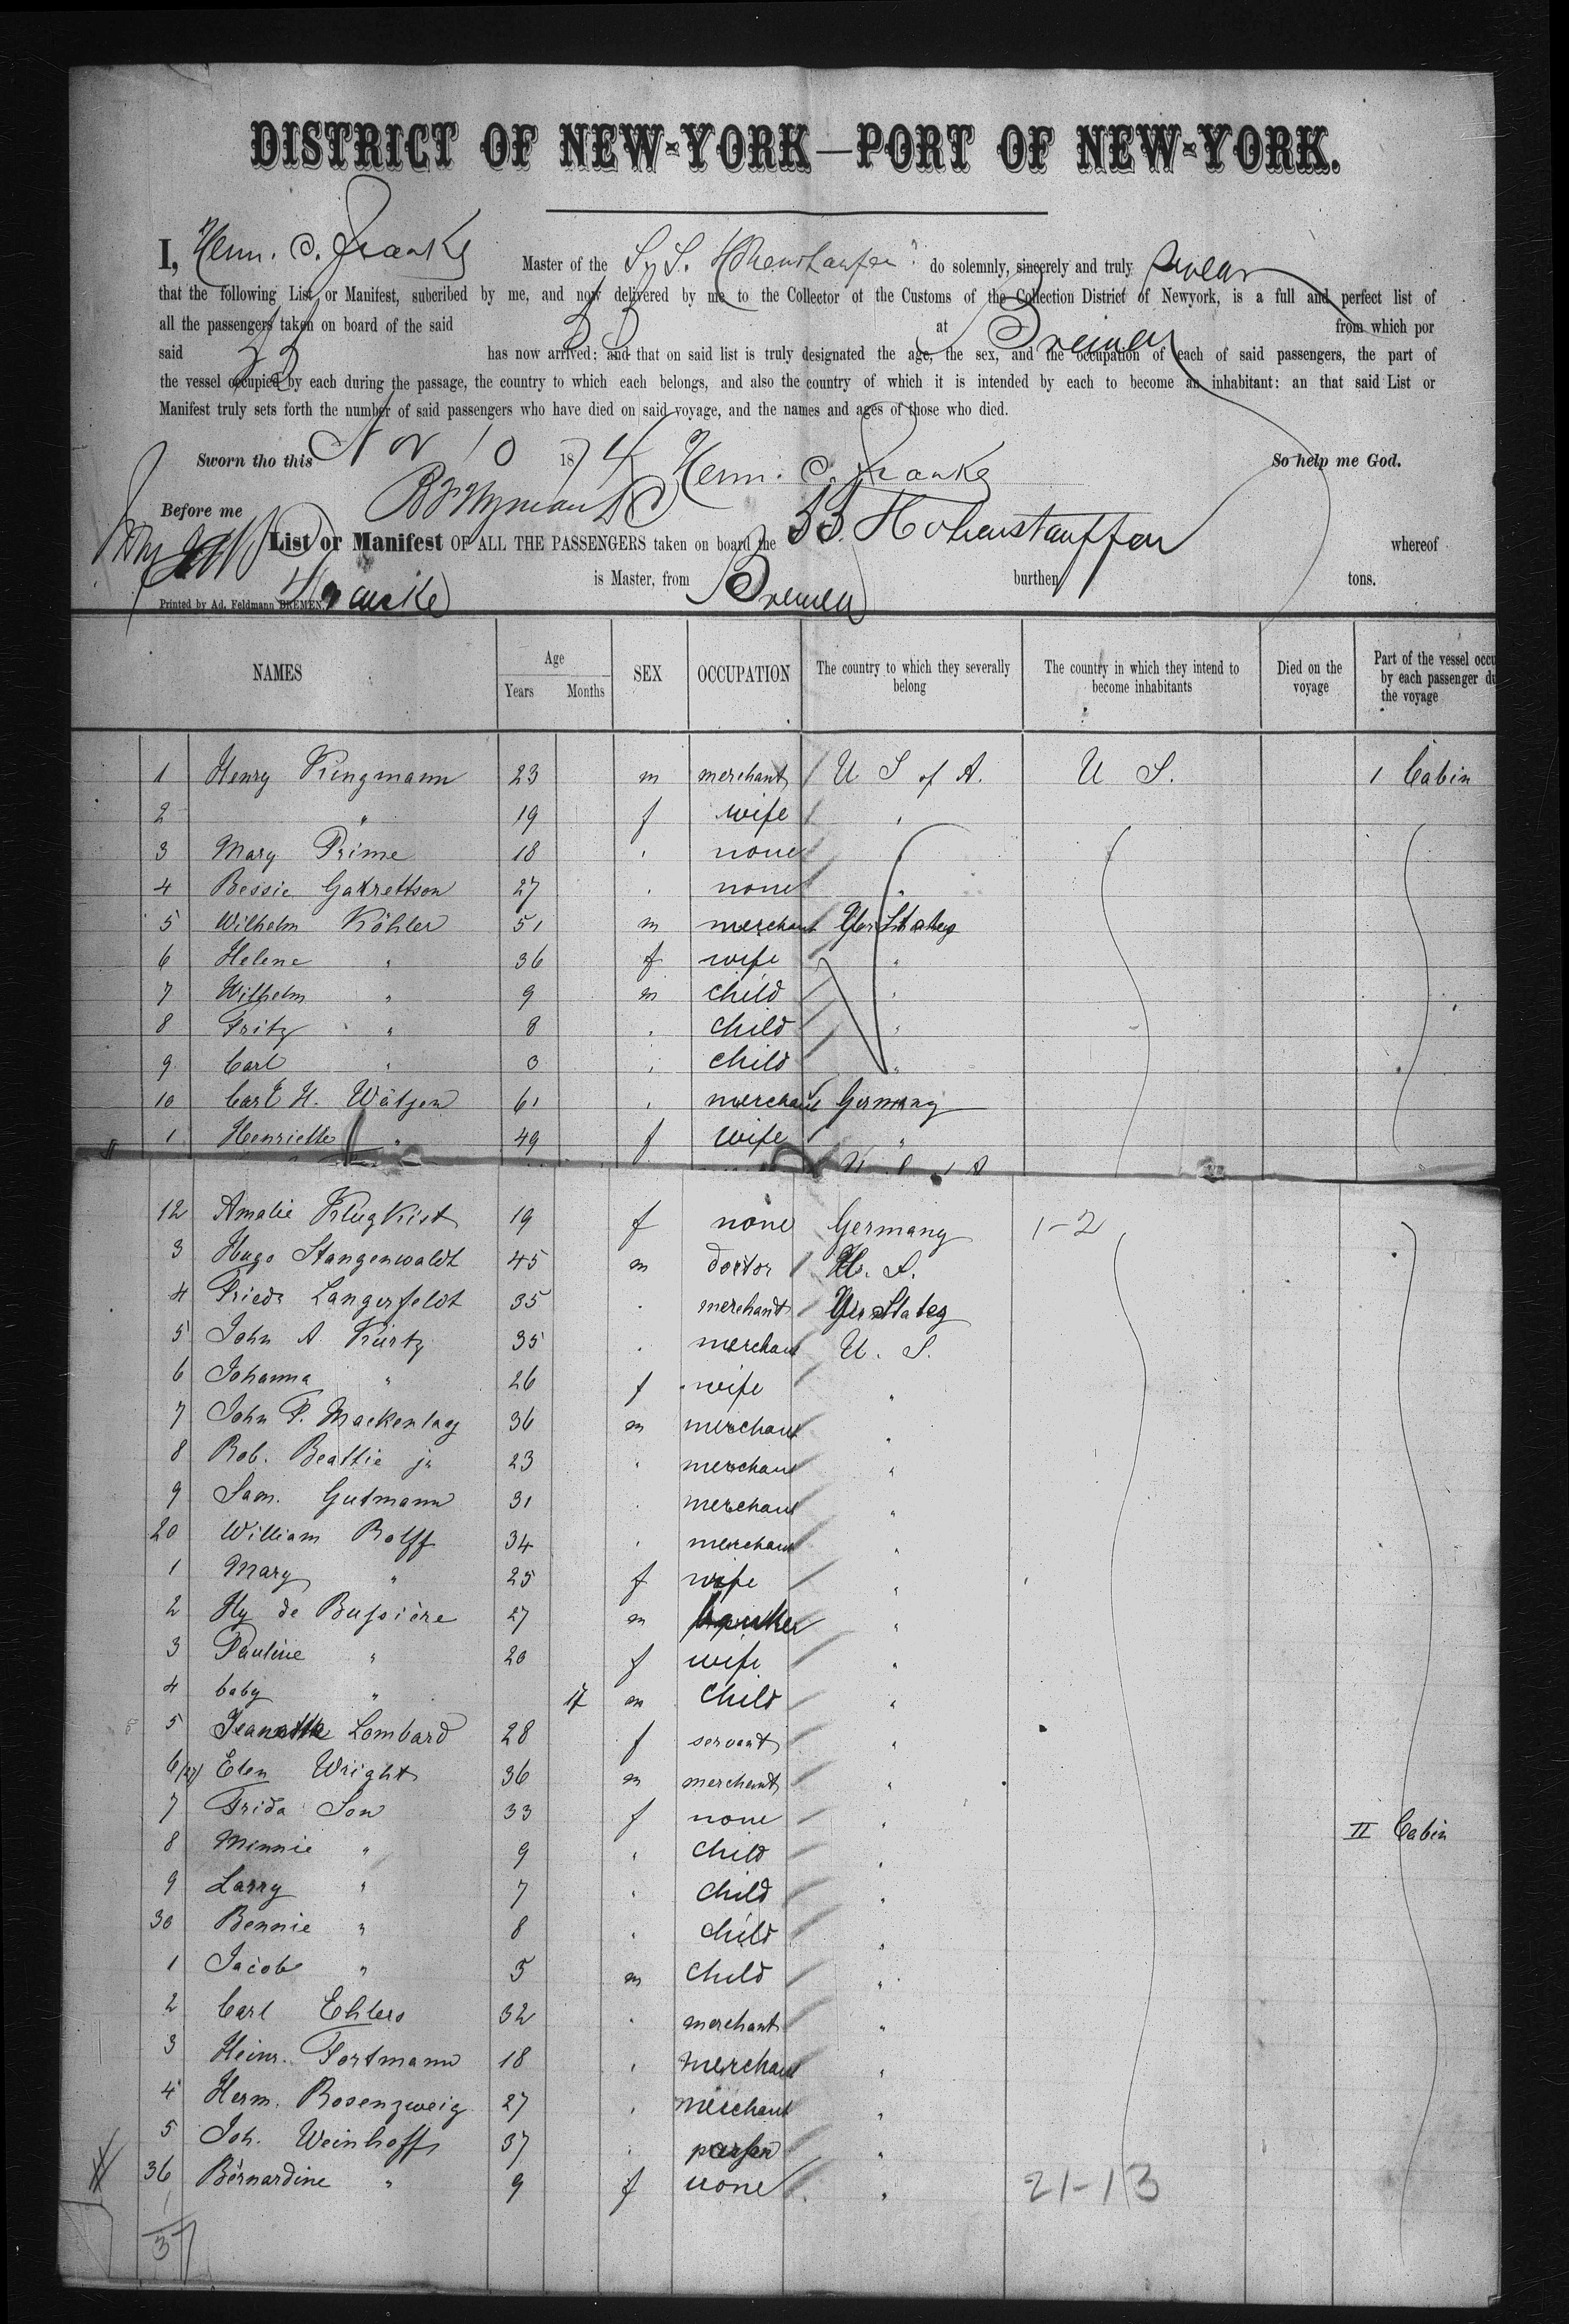 DISTRICT OF NEW-YORK—PORT OF NEW-YORK.
I, Herm. C. Franke Master of the S.S. Hohenstaufen do solemnly, sincerely and truly swear
that the following List or Manifest, suberibed by me, and now delivered by me to the Collector of the Customs of the Collection District of Newyork, is a full and perfect list of
all the passengers taken on board of the said SS at Bremen from which por
said SS has now arrived: and that on said list is truly designated the age, the sex, and the occupation of each of said passengers, the part of
the vessel occupied by each during the passage, the country to which each belongs, and also the country of which it is intended by each to become an inhabitant: an that said List or
Manifest truly sets forth the number of said passengers who have died on said voyage, and the names and ages of those who died.
Sworn tho this Nov 10 1874 Herm. C. Franke So help me God.
Before me
List or Manifest OF ALL THE PASSENGERS taken on board the SS. Hohenstauffen whereof
Francke is Master, from Bremen burthen tons.
Printed by Ad. Feldmann BREMEN.
NAMES Age Years Months SEX OCCUPATION The country to which they severally belong The country in which they intend to become inhabitants Died on the voyage Part of the vessel occu by each passenger du the voyage
1 Henry Kingmann 23 m merchant U S of A. U S. 1 Cabin
2 " 19 f wife "
3 Mary Prime 18 " none
4 Bessie Garrettson 27 " none "
5 Wilhelm Köhler 51 m merchant States
6 Helene " 36 f wife "
7 Wilhelm " 9 m child "
8 Fritz " 8 " child "
9 Carl " 0 " child "
10 Carl H. Wätjen 61 " merchant Germany
1 Henriette " 49 f wife "
12 Amalie Klugkist 19 f none Germany 1-2
3 Hugo Stangenwaldt 45 m doctor U. S.
4 Frieda Langerfeldt 35 " merchant States
5 John A. Kurtz 35 " merchant U. S.
6 Johanna " 26 f wife "
7 John P. Mackenlag 36 m merchant "
8 Rob. Beattie jr 23 " merchant "
9 Sam. Gutmann 31 " merchant "
20 William Rolff 34 " merchant "
1 Mary " 25 f wife "
2 Hy de Bussière 27 m banker "
3 Pauline " 20 f wife "
4 baby " 17 m child "
5 Jeanette Lombard 28 f servant "
6 Elen Wright 36 m merchant "
7 Frida Son 33 f none " II Cabin
8 Minnie " 9 " child "
9 Larry " 7 " child "
30 Bennie " 8 " child "
1 Jacob " 5 m child "
2 Carl Ehlers 32 " merchant "
3 Heinr. Fortmann 18 " merchant "
4 Herm. Rosenzweig 27 " merchant "
5 Joh. Weinhoff 37 " "
36 Bernardine " 9 f none " 21-13
37